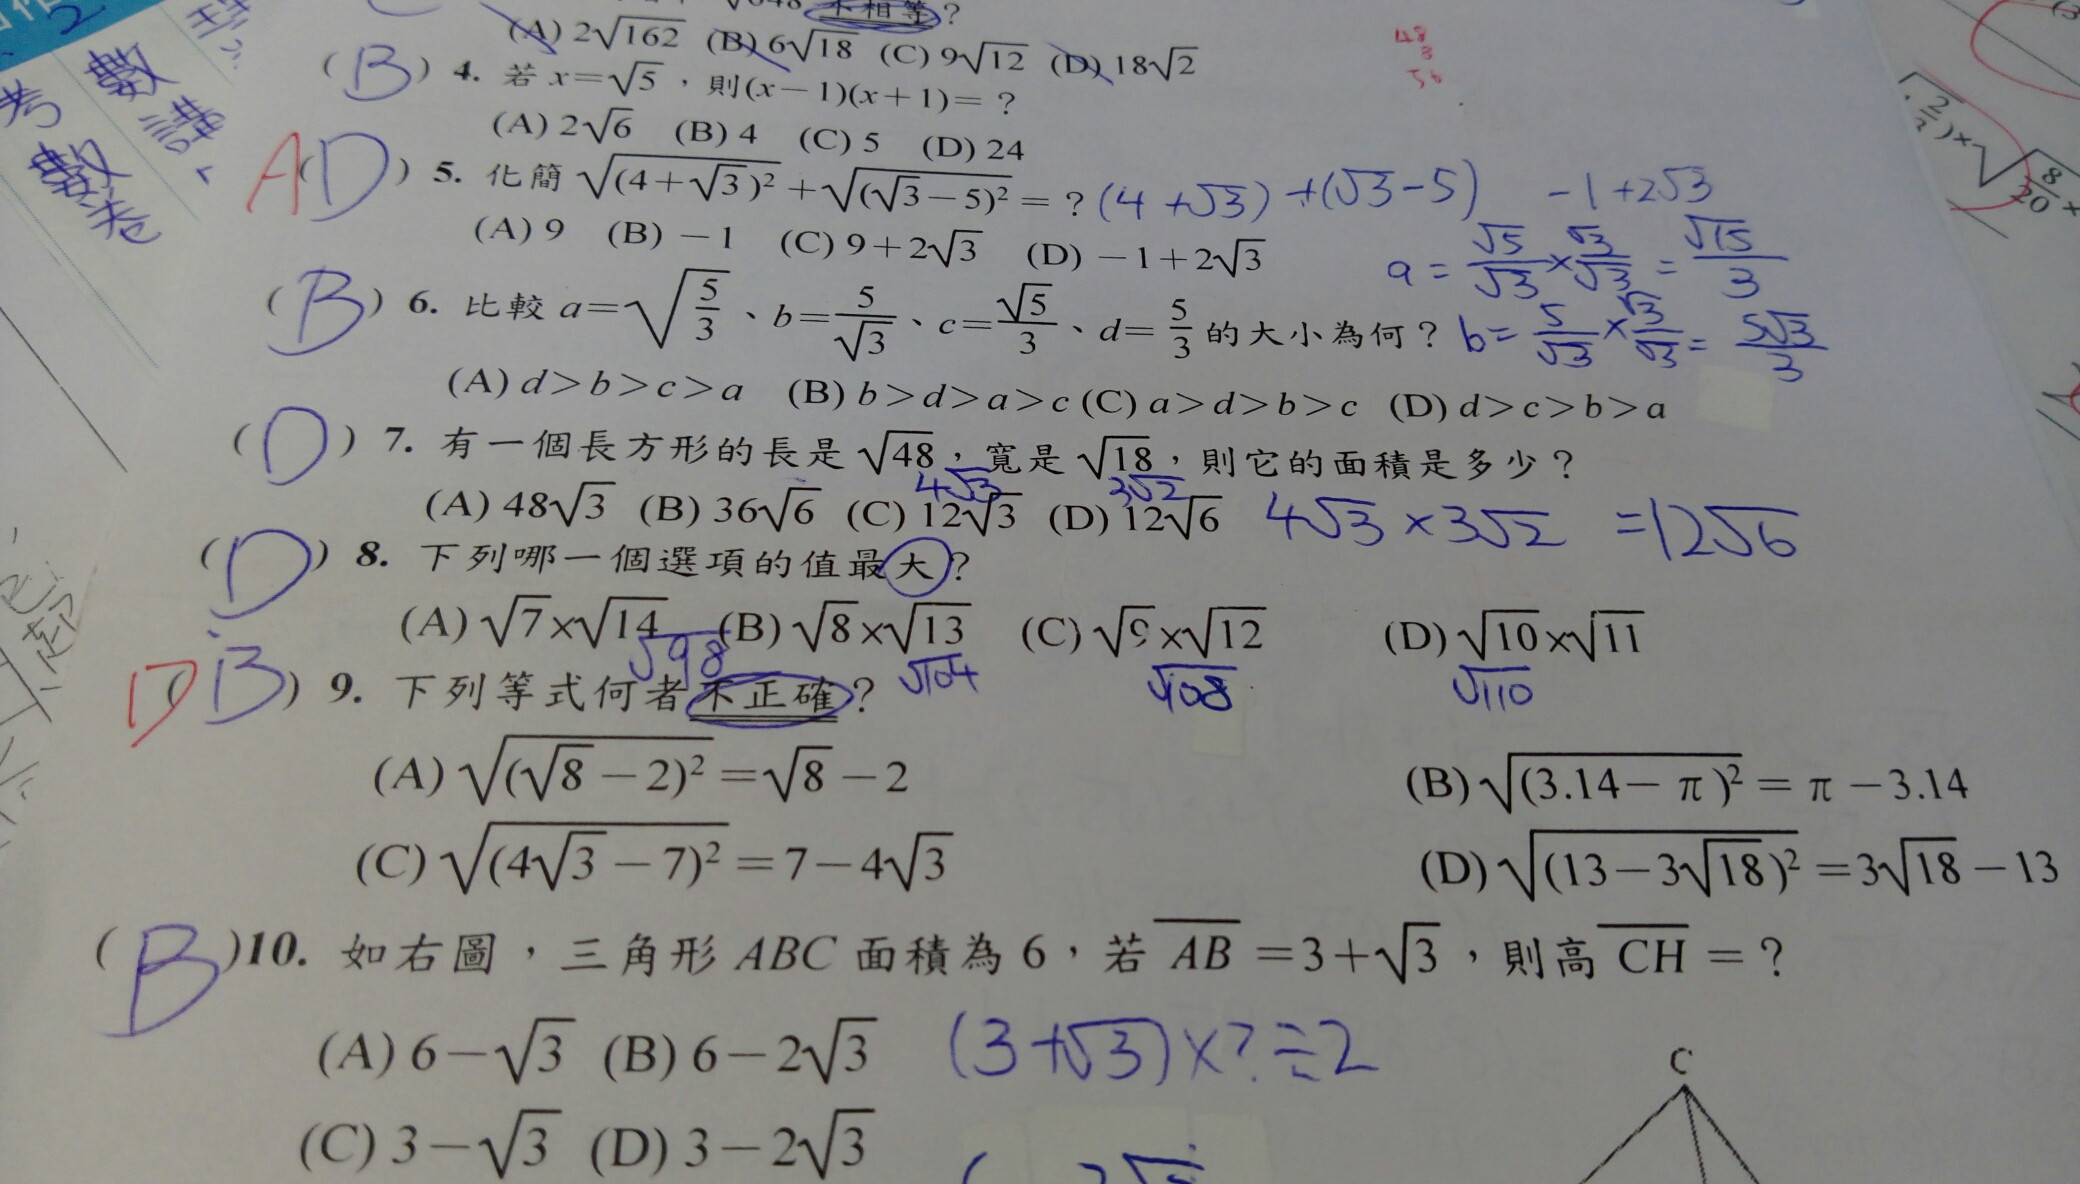 不相等？
(A) 2√162 (B) 6√18 (C) 9√12 (D) 18√2
48
3
(B) 4. 若 x=√5，則(x－1)(x＋1)＝？
(A) 2√6 (B) 4 (C) 5 (D) 24
A (D) 5. 化簡 √(4＋√3)² ＋ √(√3－5)² ＝？ (4+√3)+(√3-5) -1+2√3
(A) 9 (B) －1 (C) 9＋2√3 (D) －1＋2√3
a = √5/√3 × √3/√3 = √15/3
(B) 6. 比較 a=√(5/3)、b=5/√3、c=√5/3、d=5/3 的大小為何？ b= 5/√3 × √3/√3 = 5√3/3
(A) d>b>c>a (B) b>d>a>c (C) a>d>b>c (D) d>c>b>a
(D) 7. 有一個長方形的長是 √48，寬是 √18，則它的面積是多少？
4√3 3√2
(A) 48√3 (B) 36√6 (C) 12√3 (D) 12√6 4√3×3√2 =12√6
(D) 8. 下列哪一個選項的值最大？
(A) √7×√14 (B) √8×√13 (C) √9×√12 (D) √10×√11
√98 √104 √108 √110
D (B) 9. 下列等式何者不正確？
(A) √(√8－2)² ＝√8－2 (B) √(3.14－π)² ＝ π－3.14
(C) √(4√3－7)² ＝7－4√3 (D) √(13－3√18)² ＝3√18－13
(B) 10. 如右圖，三角形 ABC 面積為 6，若 AB ＝3＋√3，則高 CH ＝？
(A) 6－√3 (B) 6－2√3 (3+√3)×?÷2
C
(C) 3－√3 (D) 3－2√3
數
考
數
講
卷
8
20